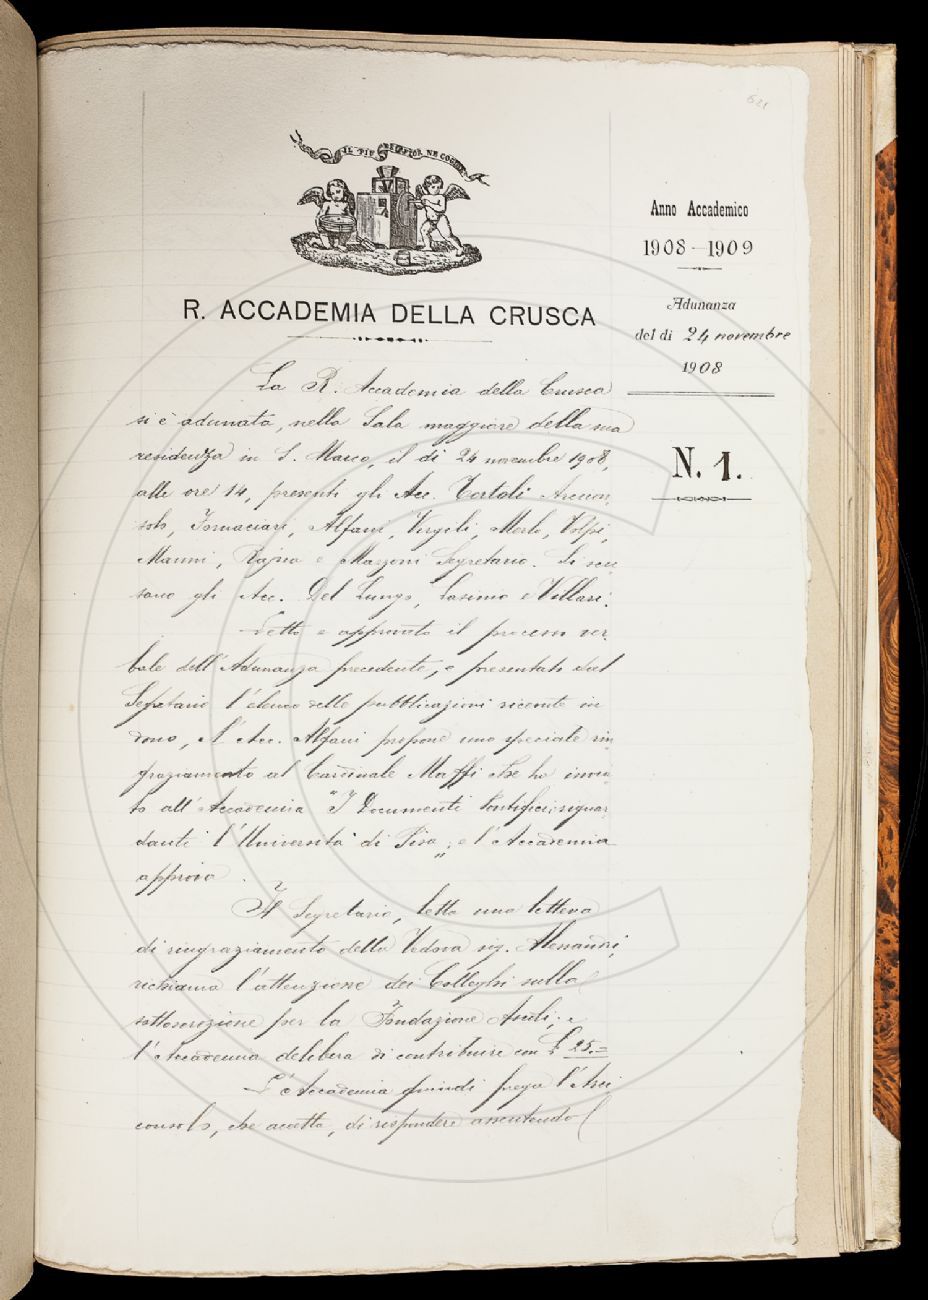 621
IL PIÙ BEL FIOR NE COGLIE
R. ACCADEMIA DELLA CRUSCA
Anno Accademico
1908-1909
Adunanza
del dì 24 novembre
1908
N. 1.
La R. Accademia della Crusca
si è adunata, nella Sala maggiore della sua
residenza in S. Marco, il dì 24 novembre 1908,
alle ore 14, presenti gli Acc. Tortoli Arcicon-
solo, Fornaciari, Alfani, Vergili, Merlo, Volpi,
Manni, Rajna e Mazzoni Segretario. Si scu-
sano gli Acc. Del Lungo, Casimo e Villari.
Letto e approvato il processo ver-
bale dell'Adunanza precedente, e presentato dal
Segretario l'elenco delle pubblicazioni ricevute in
dono, l'Acc. Alfani propone uno speciale rin-
graziamento al Cardinale Maffi che ha invia-
to all'Accademia "I Documenti Pontifici riguar-
danti l'Università di Pisa"; e l'Accademia
approva.
Il Segretario, letta una lettera
di ringraziamento della Vedova sig.
richiama l'attenzione dei Colleghi sulla
sottoscrizione per la Fondazione Ascoli; e
l'Accademia delibera di contribuire con £ 25.=
L'Accademia quindi prega l'Arci-
consolo, che accetta, di rispondere assentendo